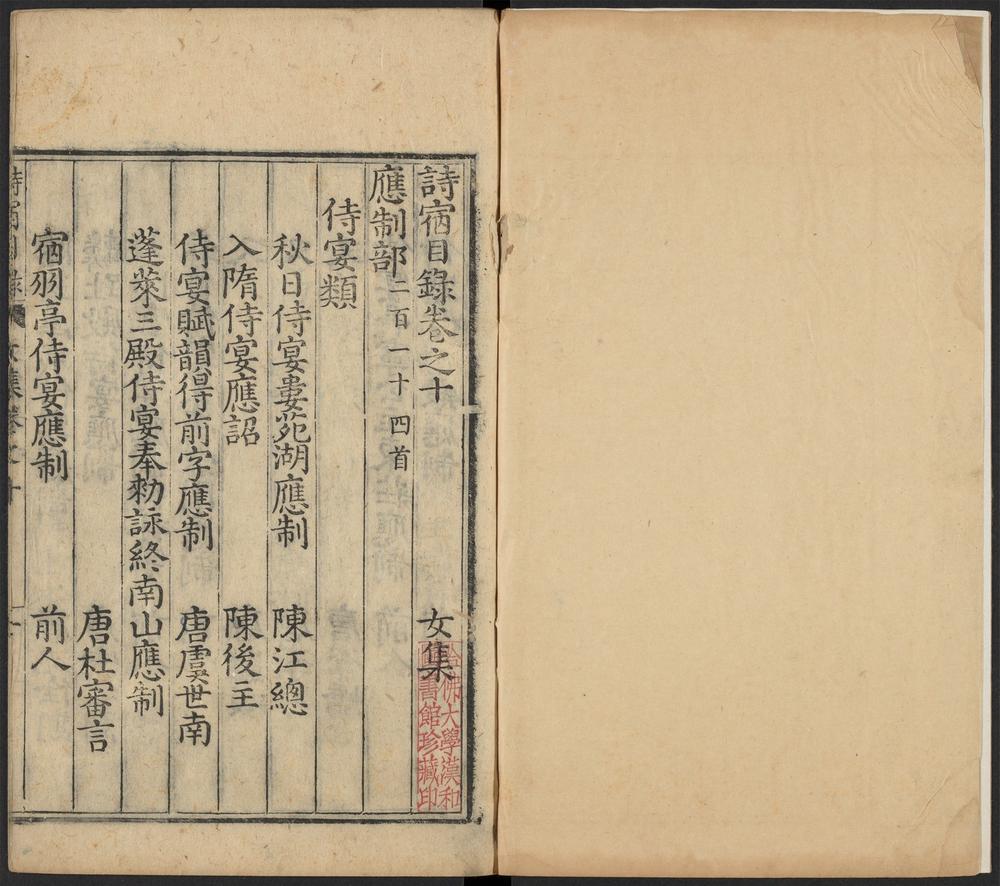 詩宿目錄卷之十 女集
哈佛大學漢和
圖書館珍藏印
應制部二百一十四首
侍宴類
秋日侍宴婁苑湖應制 陳江總
入隋侍宴應詔 陳後主
侍宴賦韻得前字應制 唐虞世南
蓬萊三殿侍宴奉勑詠終南山應制
唐杜審言
宿羽亭侍宴應制 前人
詩宿目錄 女集卷之十